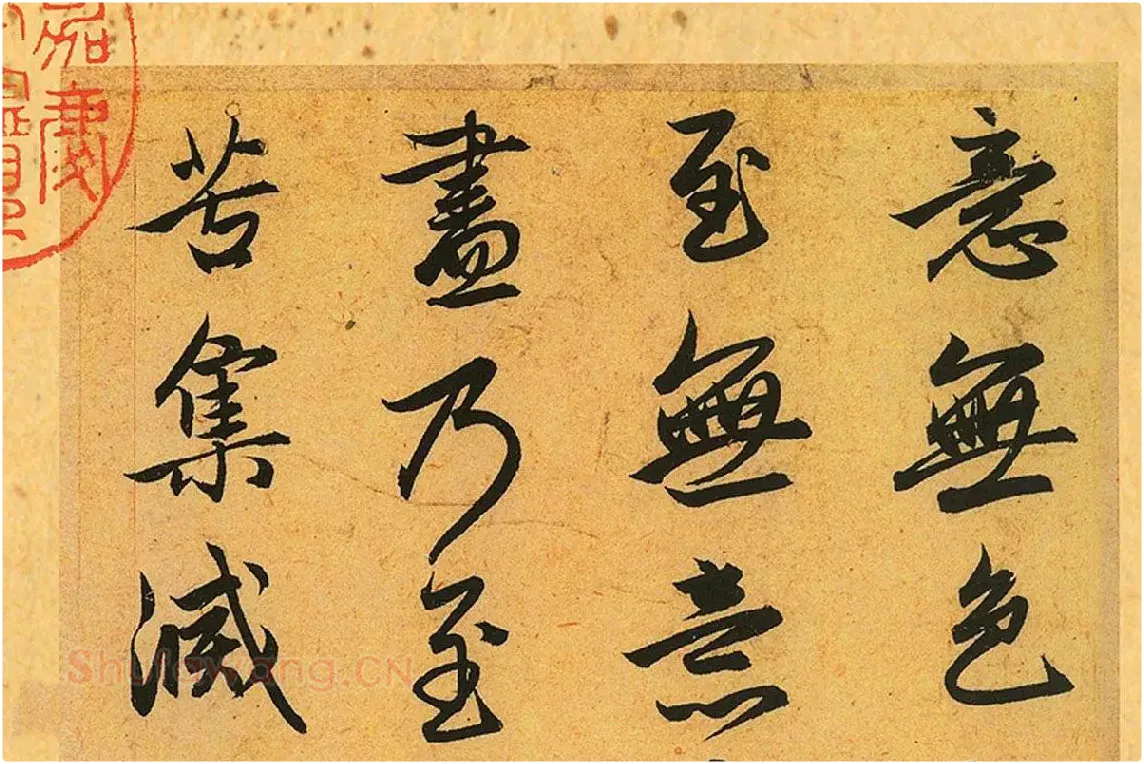 意無色
至無意
盡乃至
苦集滅
ShufaWang.CN